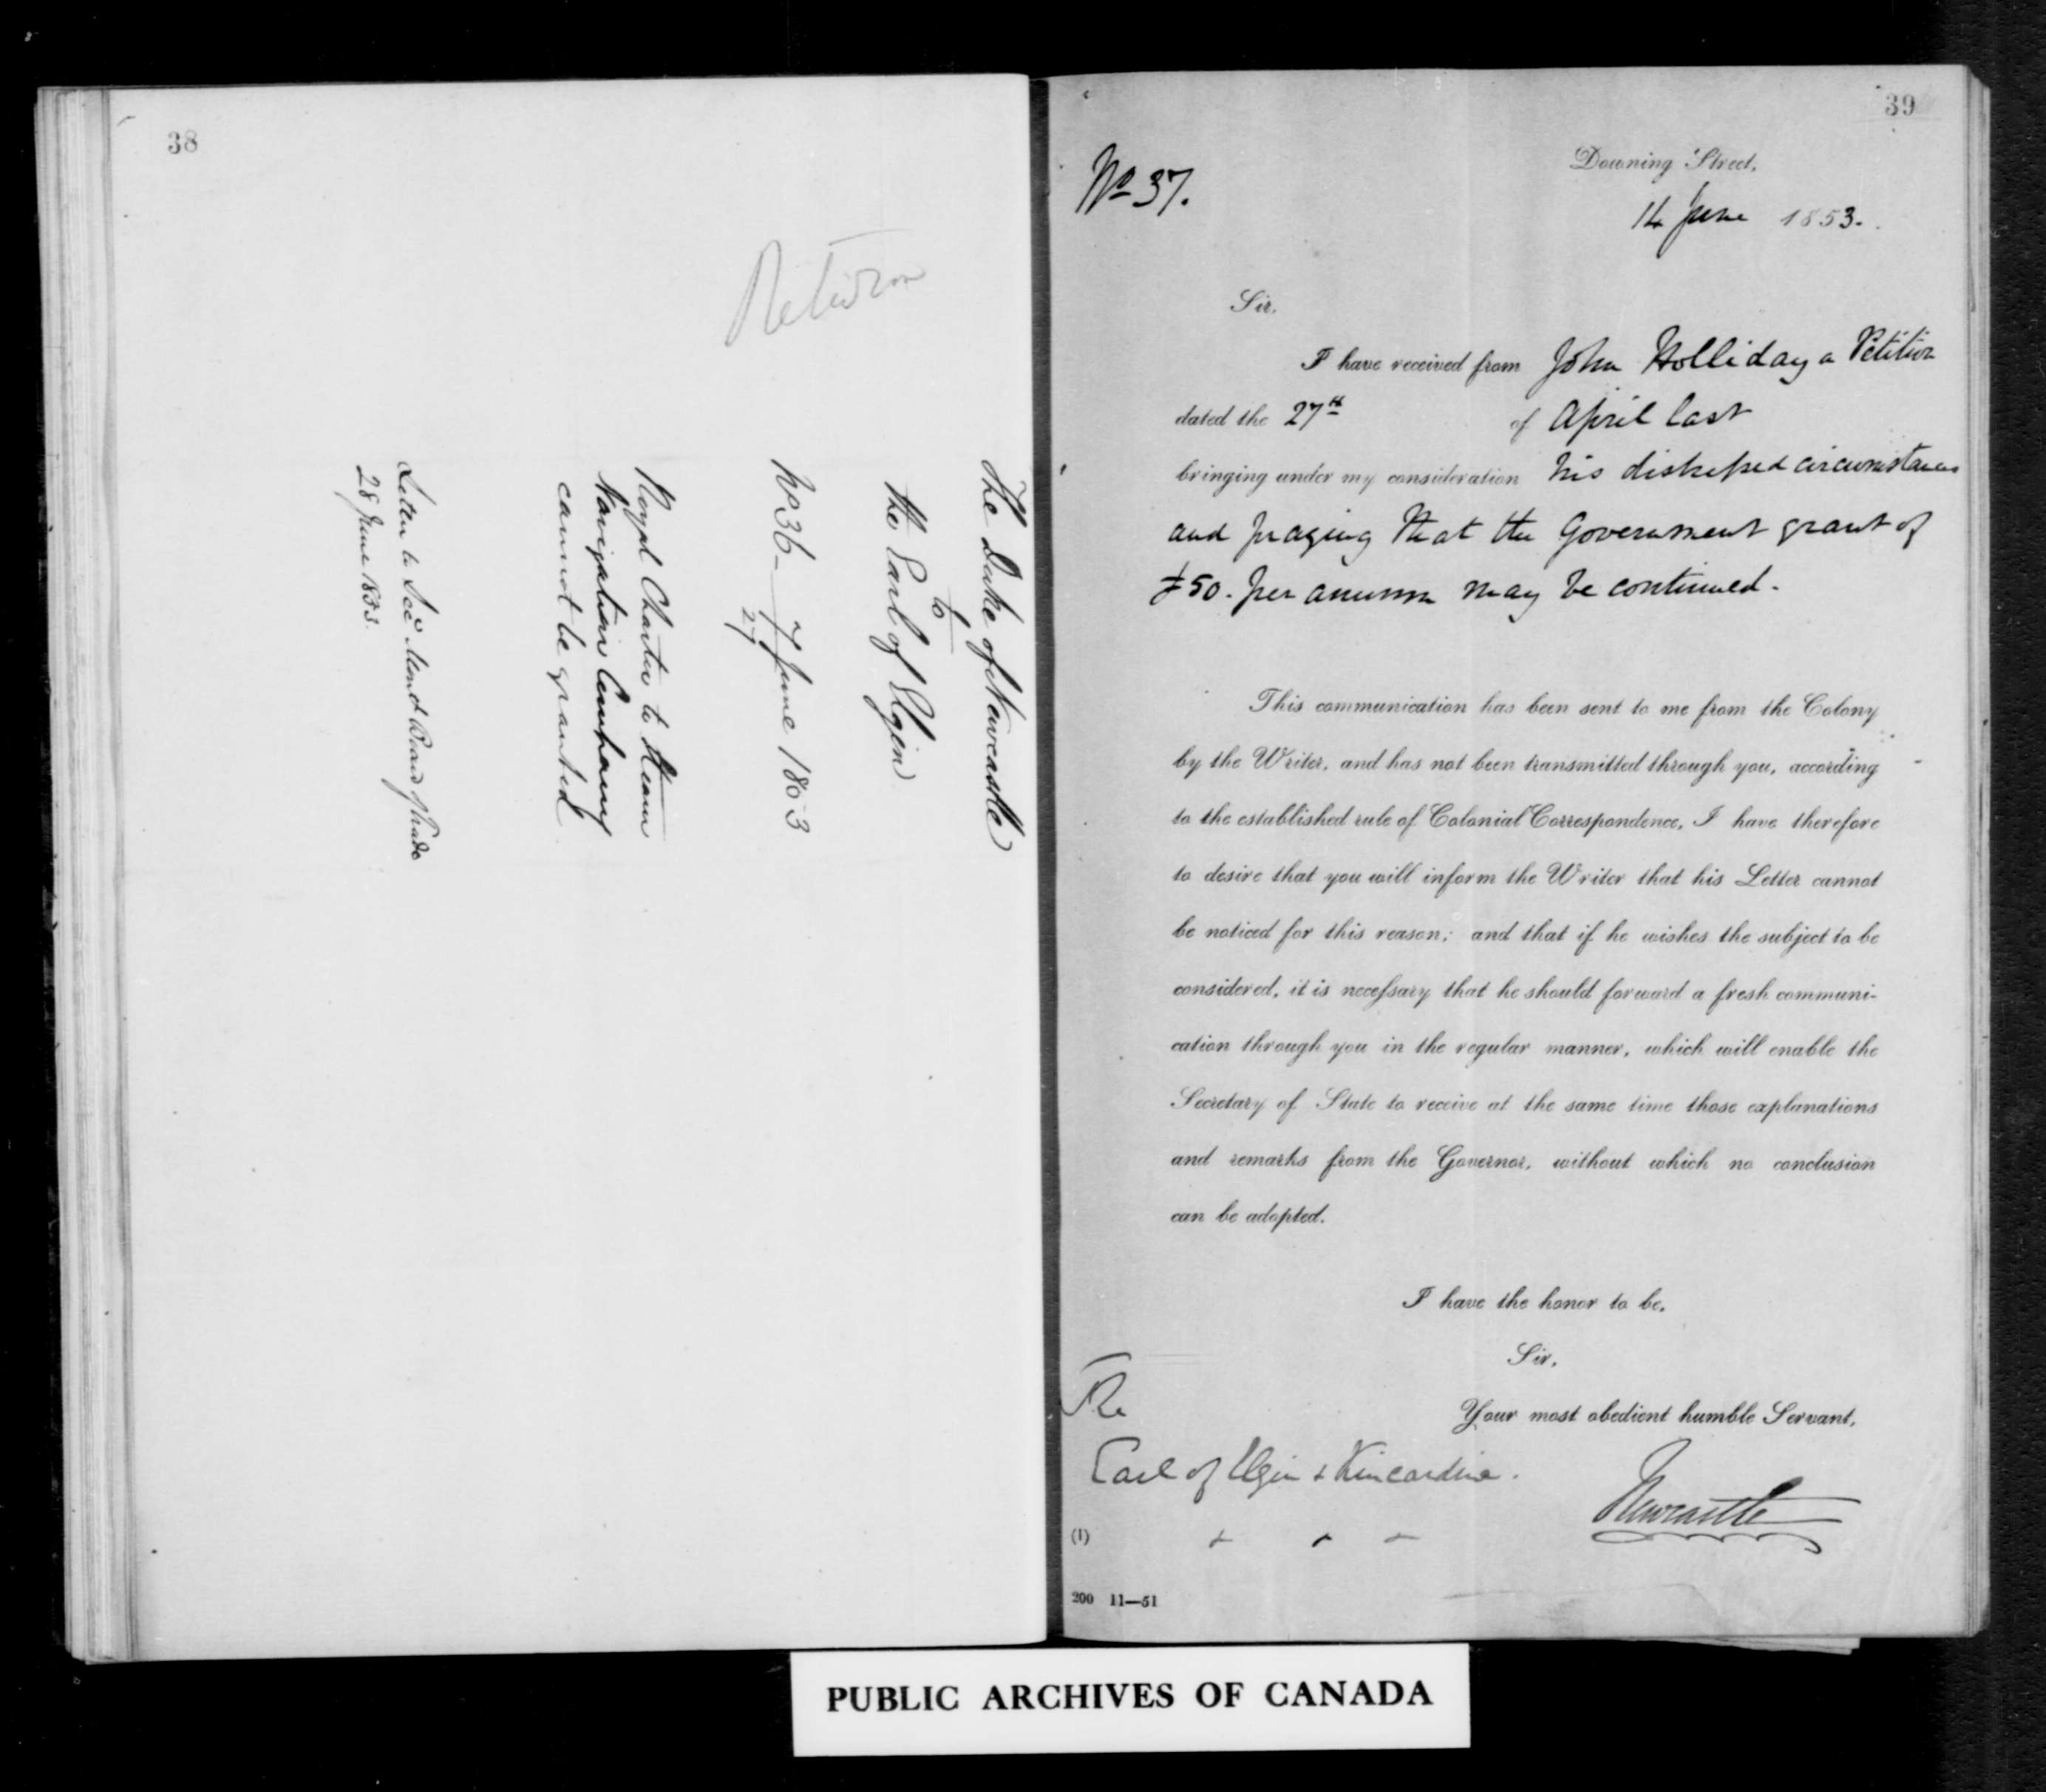 38
Return
The Duke of Newcastle
to
the Earl of Elgin
No 36 - 7 June 1853
27
Royal Charter to Steam
Navigation Company
cannot be granted
Letter to Board of Trade
28 June 1853.
39
No 37.
Downing Street,
14 June 1853.
Sir,
I have received from John Holliday a Petition
dated the 27th of April last
bringing under my consideration his distressed circumstances
and praying that the Government grant of
£50. per annum may be continued.
This communication has been sent to me from the Colony
by the Writer, and has not been transmitted through you, according
to the established rule of Colonial Correspondence, I have therefore
to desire that you will inform the Writer that his Letter cannot
be noticed for this reason; and that if he wishes the subject to be
considered, it is necessary that he should forward a fresh communi-
cation through you in the regular manner, which will enable the
Secretary of State to receive at the same time those explanations
and remarks from the Governor, without which no conclusion
can be adopted.
I have the honor to be,
Sir,
Your most obedient humble Servant,
Newcastle
The
Earl of Elgin & Kincardine.
(1)
200 11—51
PUBLIC ARCHIVES OF CANADA